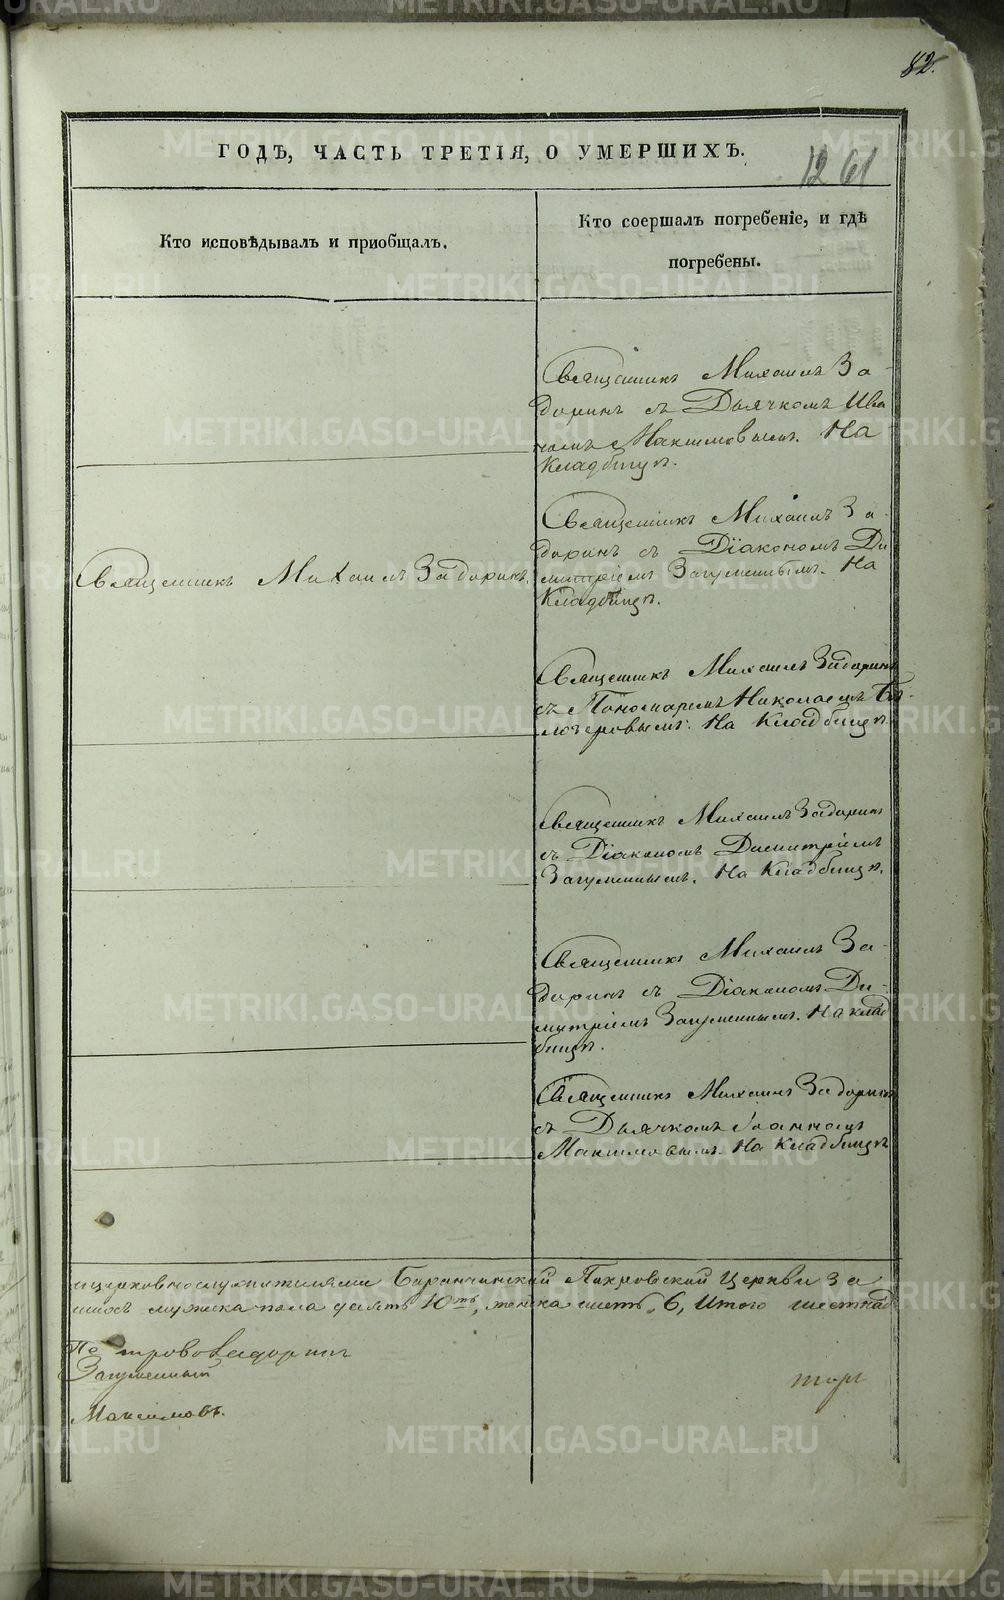 82.
ГОДЪ, ЧАСТЬ ТРЕТІЯ, О УМЕРШИХЪ.
12 61
Кто исповѣдывалъ и приобщалъ.
Кто соершалъ погребеніе, и гдѣ
погребены.
Священникъ Михаилъ За-
доринъ съ Дьячкомъ Ива
номъ Максимовымъ. На
Кладбищѣ.
Священникъ Михаилъ Задоринъ.
Священникъ Михаилъ За-
доринъ съ Діакономъ Ди
митріемъ Загуменнымъ. На
Кладбищѣ.
Священникъ Михаилъ Задоринъ
съ Пономаремъ Николаемъ Бѣ-
лозеровымъ. На Кладбищѣ.
Священникъ Михаилъ Задоринъ
съ Діакономъ Димитріемъ
Загуменнымъ. На Кладбищѣ.
Священникъ Михаилъ За-
доринъ съ Діакономъ Ди-
митріемъ Загуменнымъ. На клад
бищѣ.
Священникъ Михаилъ Задоринъ
съ Дьячкомъ Іоанномъ
Максимовымъ. На Кладбищѣ
ицерковнослужителями Баранчинской Церкви За
мужска пола 10ть, женска шесть 6, Итого шестнад
Задоринъ
Загуменный
Максимовъ.
METRIKI.GASO-URAL.RU